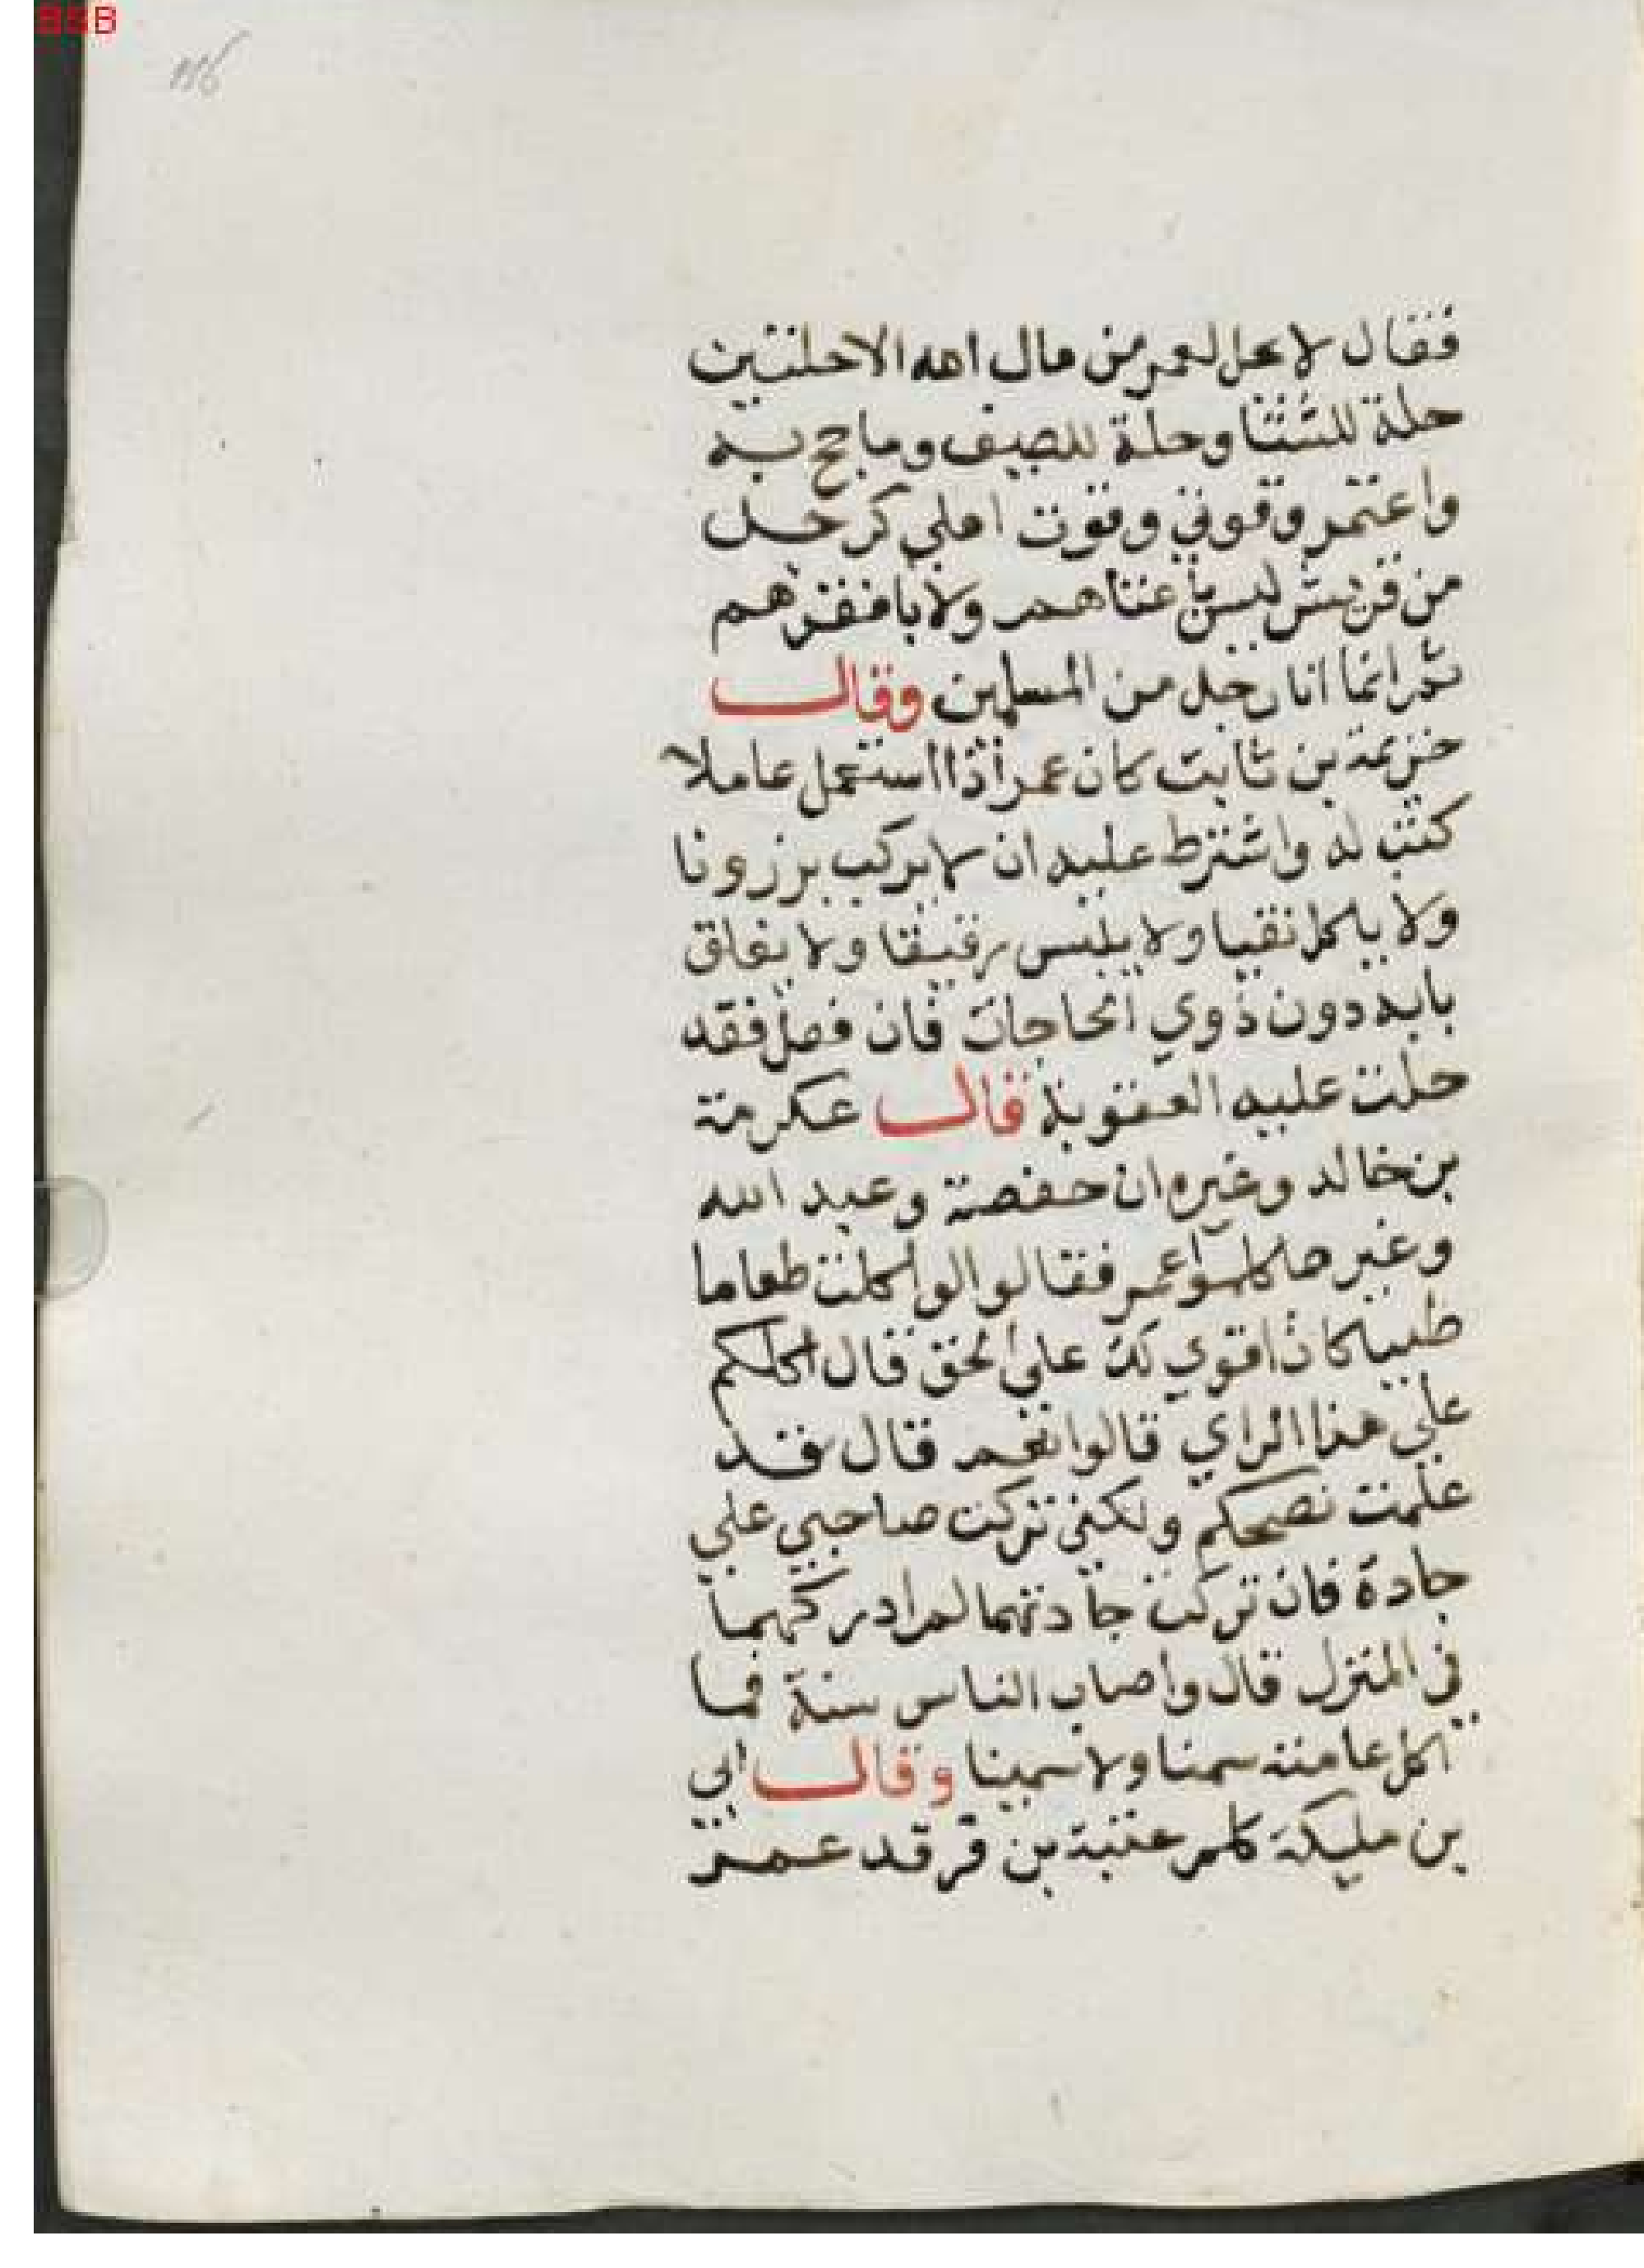 BSB
فقال لا يحل لعمر من مال الله الا حلتين
حلة للشتا وحلة للصيف وما حج به
واعتمر وقوتي وقوت اهلي كرجل
من قريش ليس باغناهم ولا بافقرهم
ثم انما انا رجل من المسلمين وقال
خزيمة بن ثابت كان عمر اذا استعمل عاملا
كتب له واشترط عليه ان لا يركب برزونا
ولا ياكل نقيا ولا يلبس رقيقا ولا يغلق
بابه دون ذوي الحاجات فان فعل فقد
حلت عليه العقوبة قال عكرمة
بن خالد وغيره ان حفصة وعبد الله
وغيرهما كلموا عمر فقالوا لو اكلت طعاما
طيبا كان اقوي لك علي الحق قال اكلكم
علي هذا الراي قالوا نعم قال فقد
علمت نصحكم ولكني تركت صاحبي علي
جادة فان تركت جادتهما لم ادركهما
في المنزل قال واصاب الناس سنة فما
اكل عامئذ سمنا ولا سمينا وقال ابي
بن مليكة كلم عتبة بن فرقد عمر